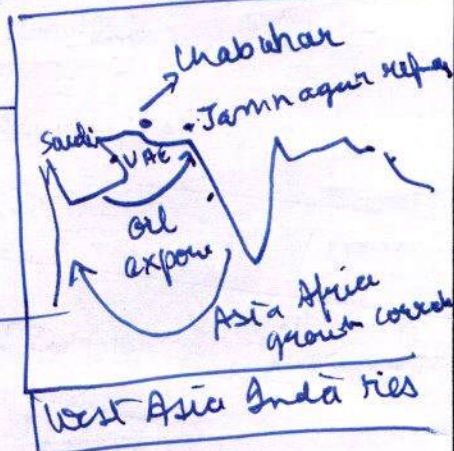 Chabahar
Jamnagar
Saudi
UAE
oil
export
Asia Africa
growth
West Asia India ties